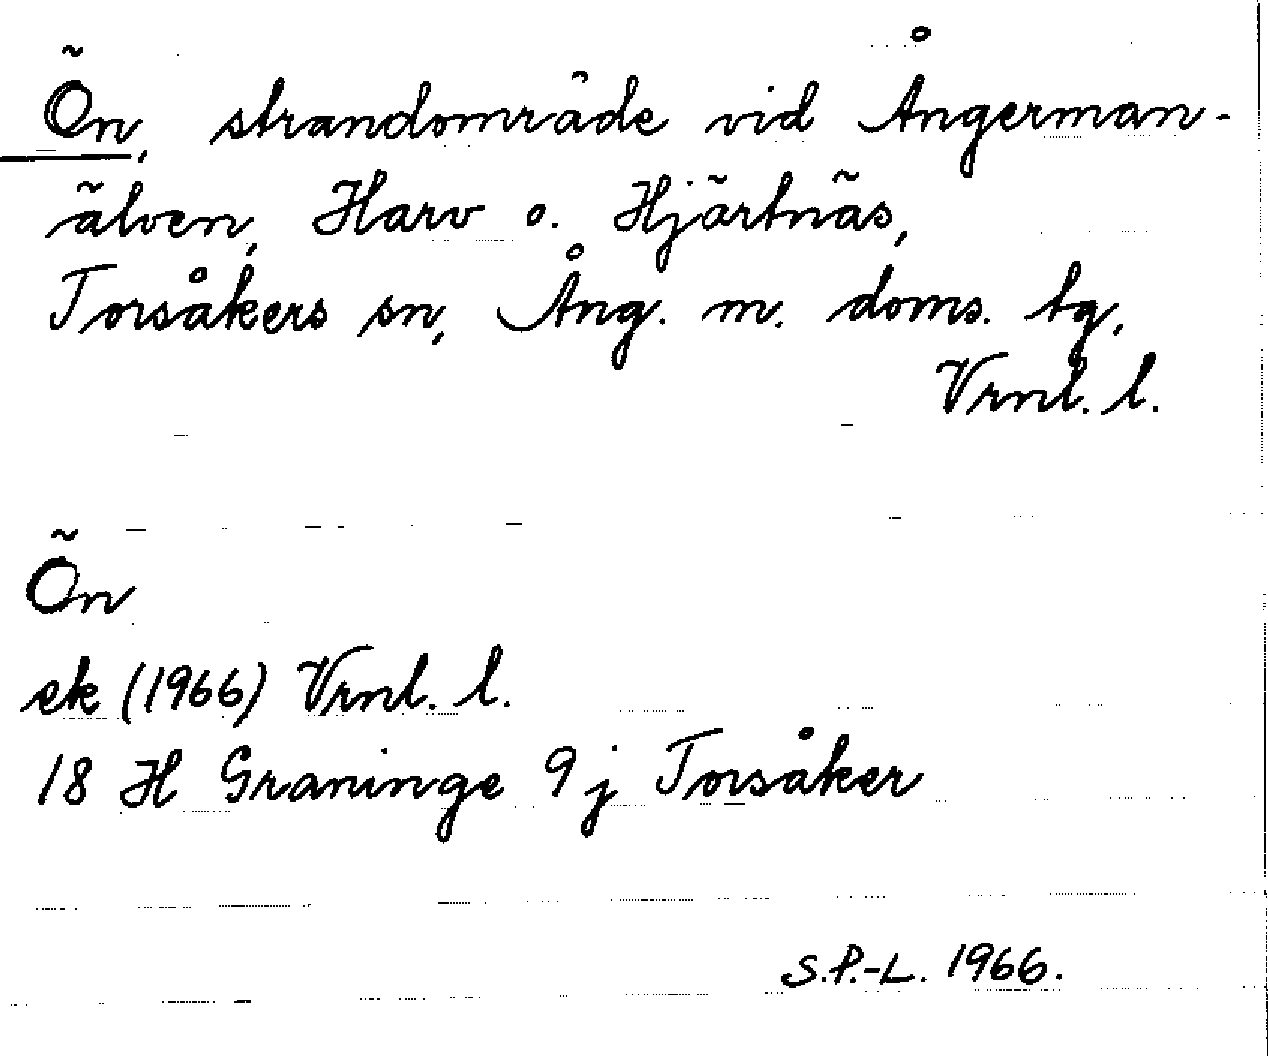 Ön, strandområde vid Ångerman-
älven, Harv o. Hjärtnäs,
Torsåkers sn, Ång. m. doms. tg,
Vrnl. l.
Ön
ek (1966) Vrnl. l.
18 H Graninge 9 j Torsåker
S.P.-L. 1966.